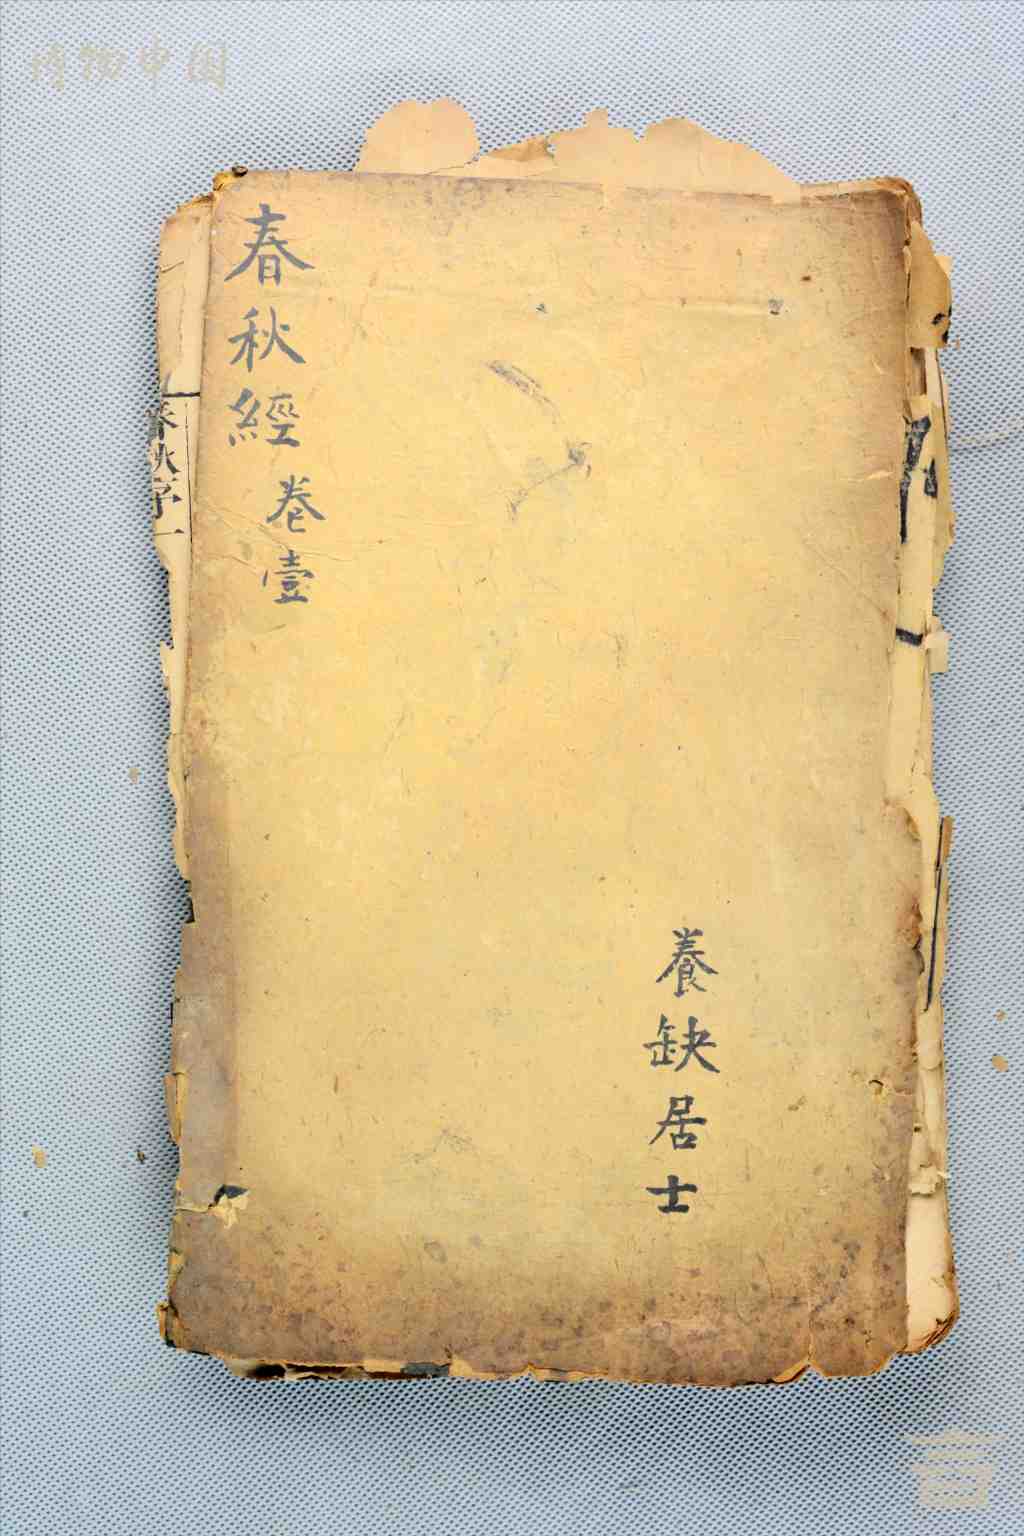 博物中国
春秋經
卷壹
養缺居士
春秋序一